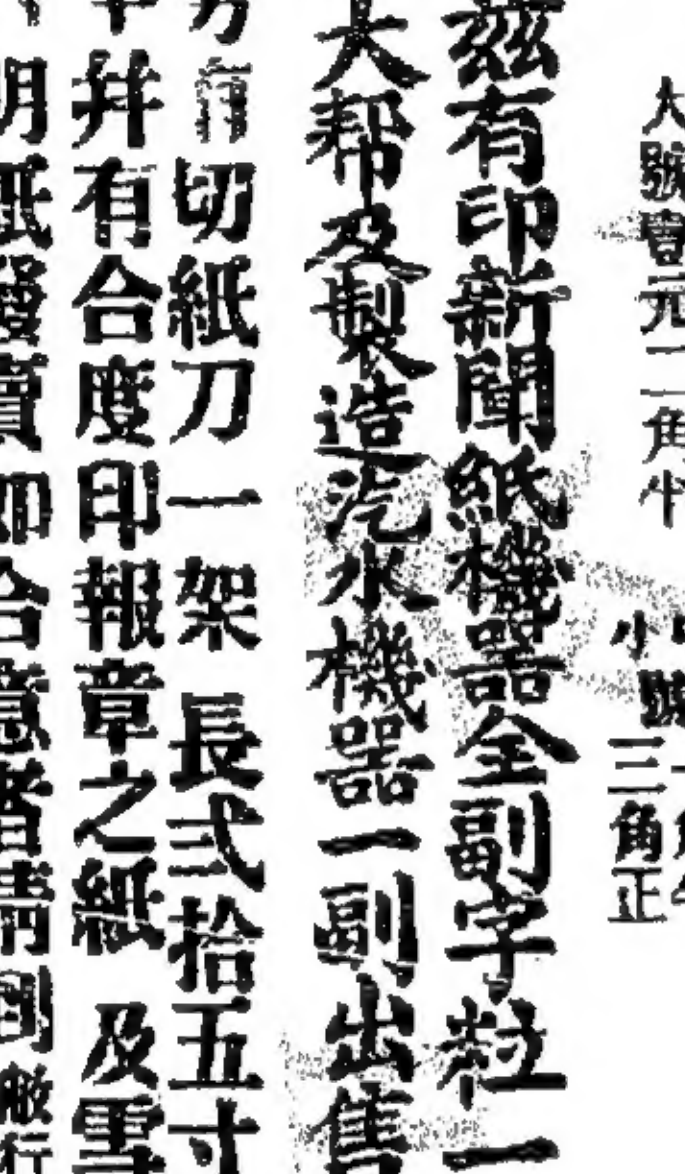 大號壹元二角半
小號三角正
茲有印新聞紙機器全副字粒一
大帮及製造汽水機器一副出售
切紙刀一架 長弍拾五寸
幷有合度印報章之紙 及雪
明紙發賣如合意者請到敝行